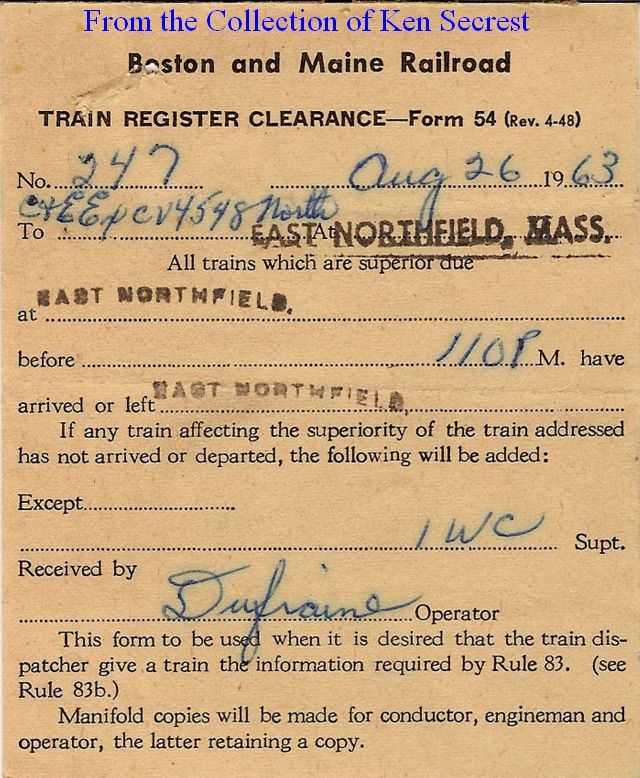 From the Collection of Ken Secrest
Boston and Maine Railroad
TRAIN REGISTER CLEARANCE—Form 54 (Rev. 4-48)
No. 247 Aug 26 1963
To C&E Ex CV 4548 North At EAST NORTHFIELD, MASS.
All trains which are superior due
at EAST NORTHFIELD.
before 110P M. have
arrived or left EAST NORTHFIELD.
If any train affecting the superiority of the train addressed
has not arrived or departed, the following will be added:
Except
1 WC Supt.
Received by
Dufraine Operator
This form to be used when it is desired that the train dis-
patcher give a train the information required by Rule 83. (see
Rule 83b.)
Manifold copies will be made for conductor, engineman and
operator, the latter retaining a copy.